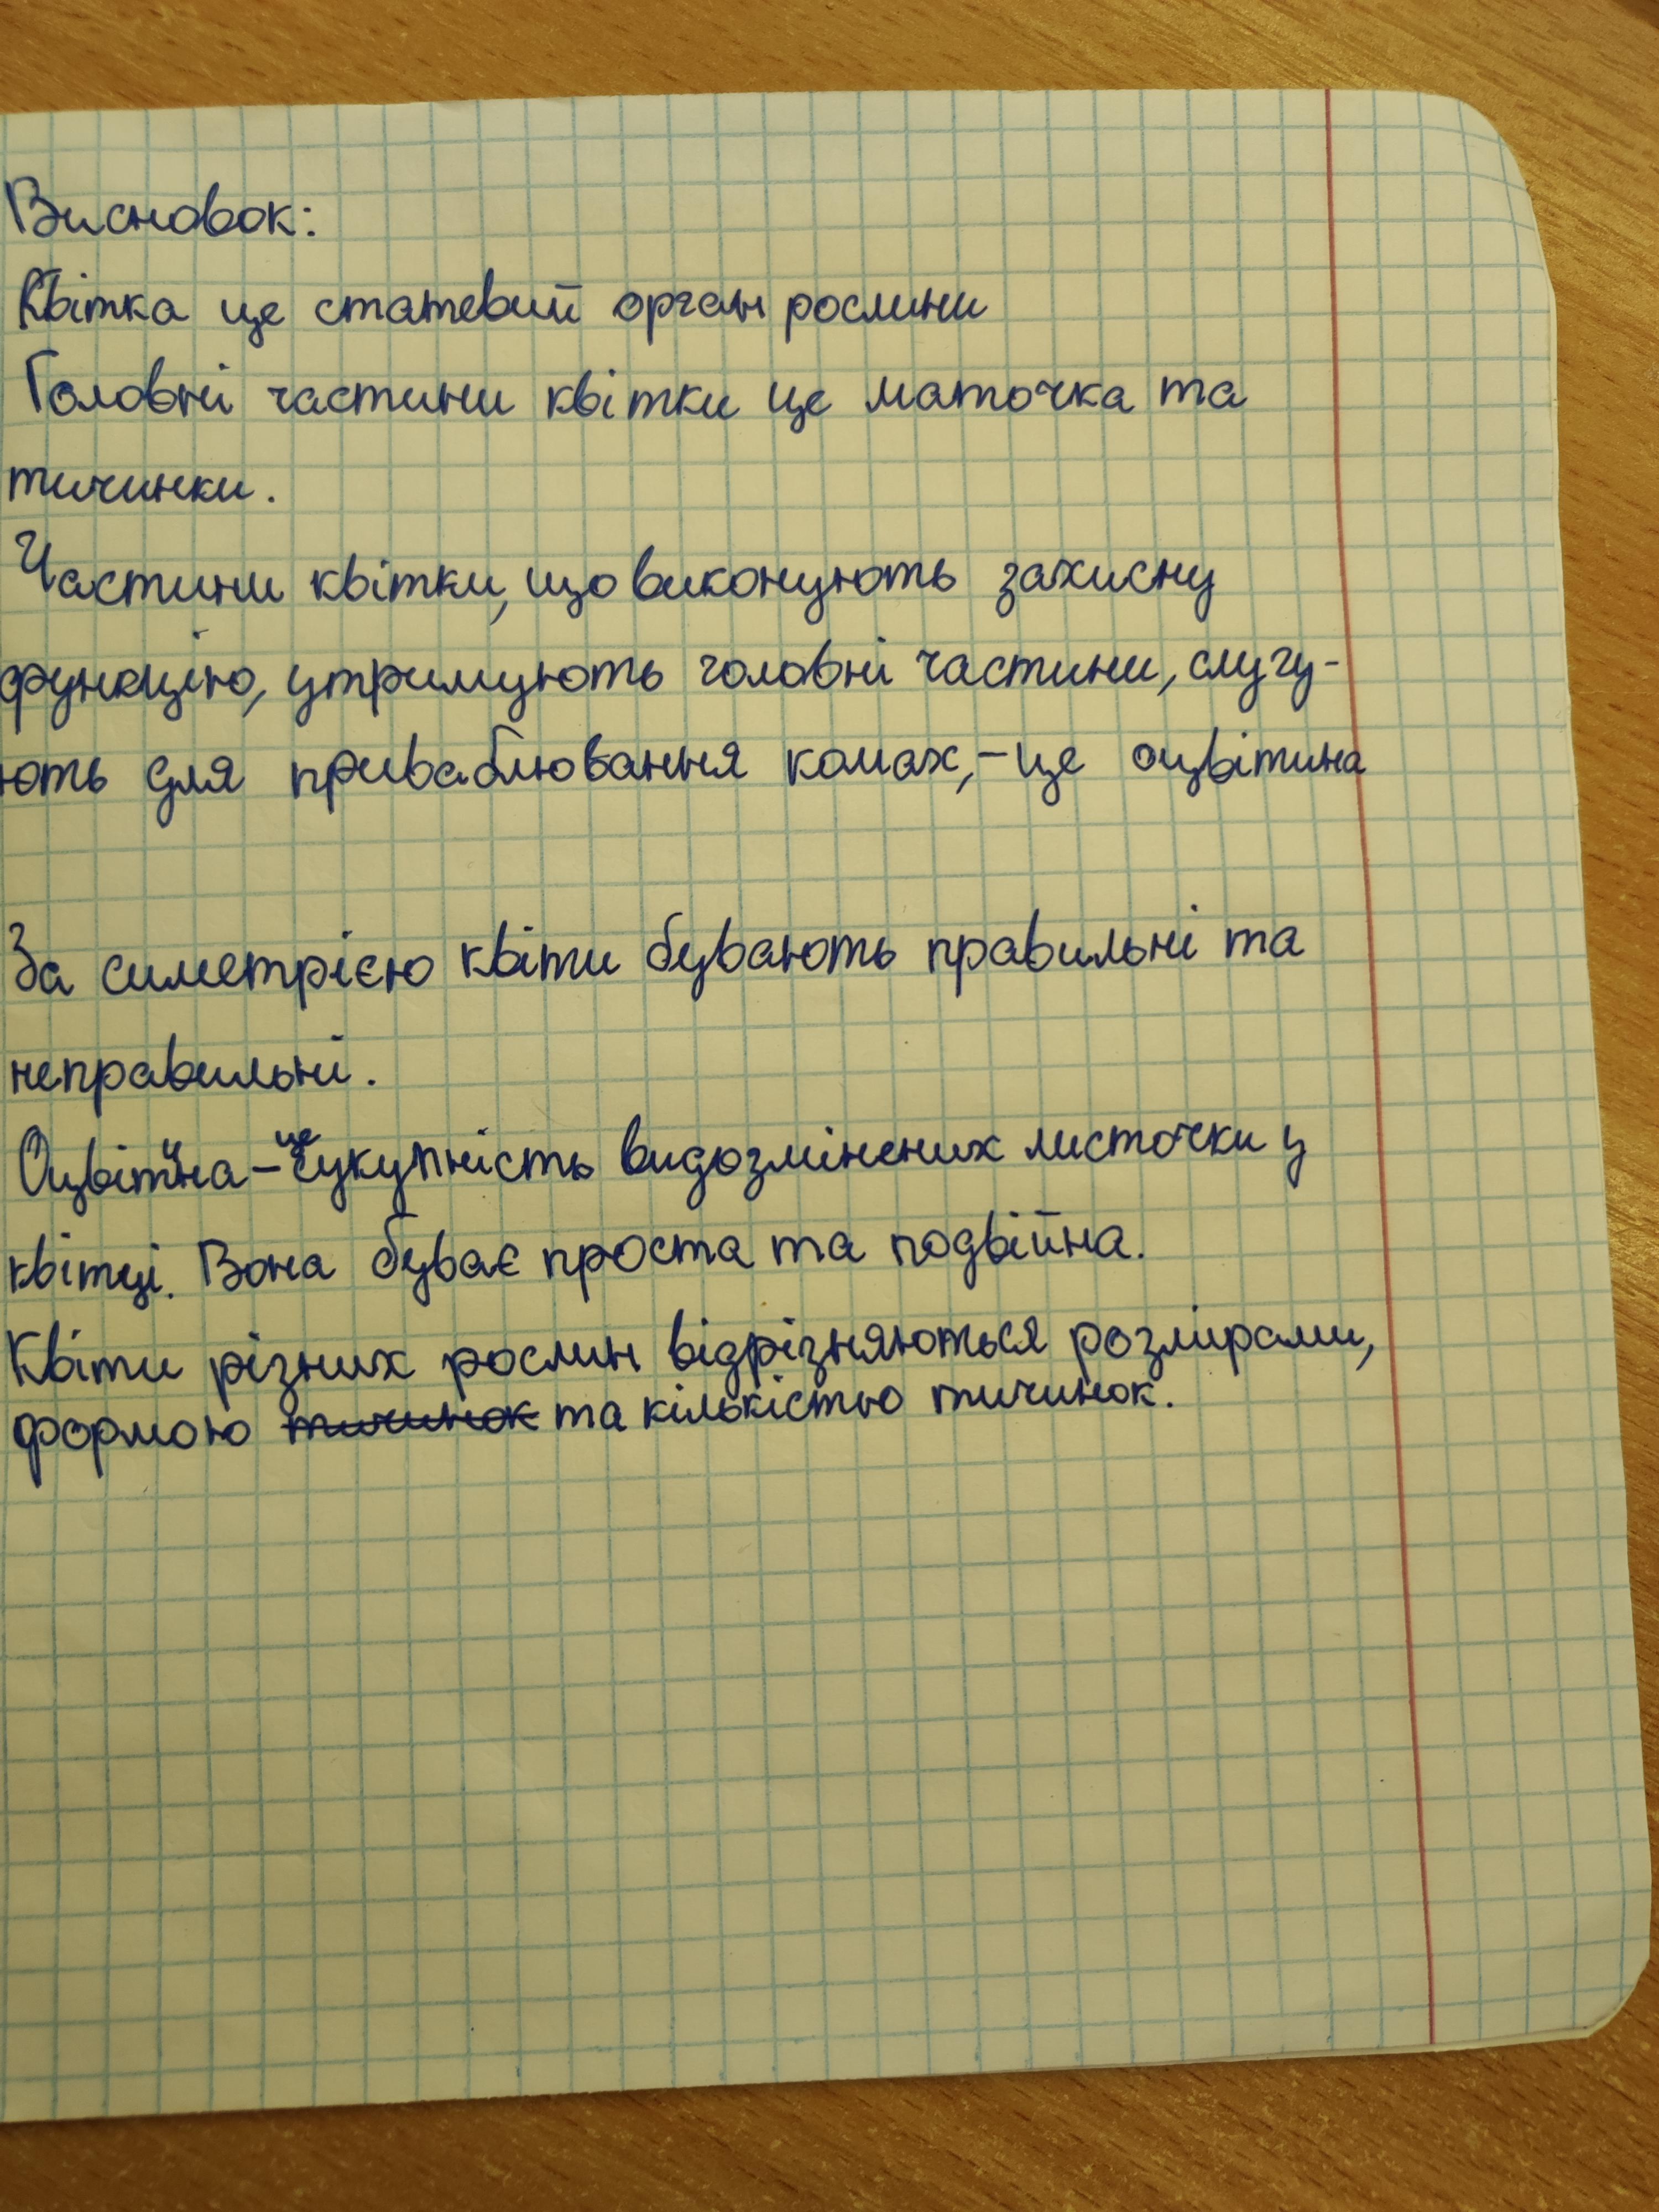 Висновок:
Квітка це статевий орган рослини
Головні частини квітки це маточка та
тичинки.
Частини квітки, що виконують захисну
функцію, утримують головні частини, слугу-
ють для приваблювання комах, - це оцвітина
За симетрією квіти бувають правильні та
неправильні.
Оцвітина - це сукупність видозмінених листочки у
квітці. Вона буває проста та подвійна.
Квіти різних рослин відрізняються розмірами,
формою тичинок та кількістю тичинок.